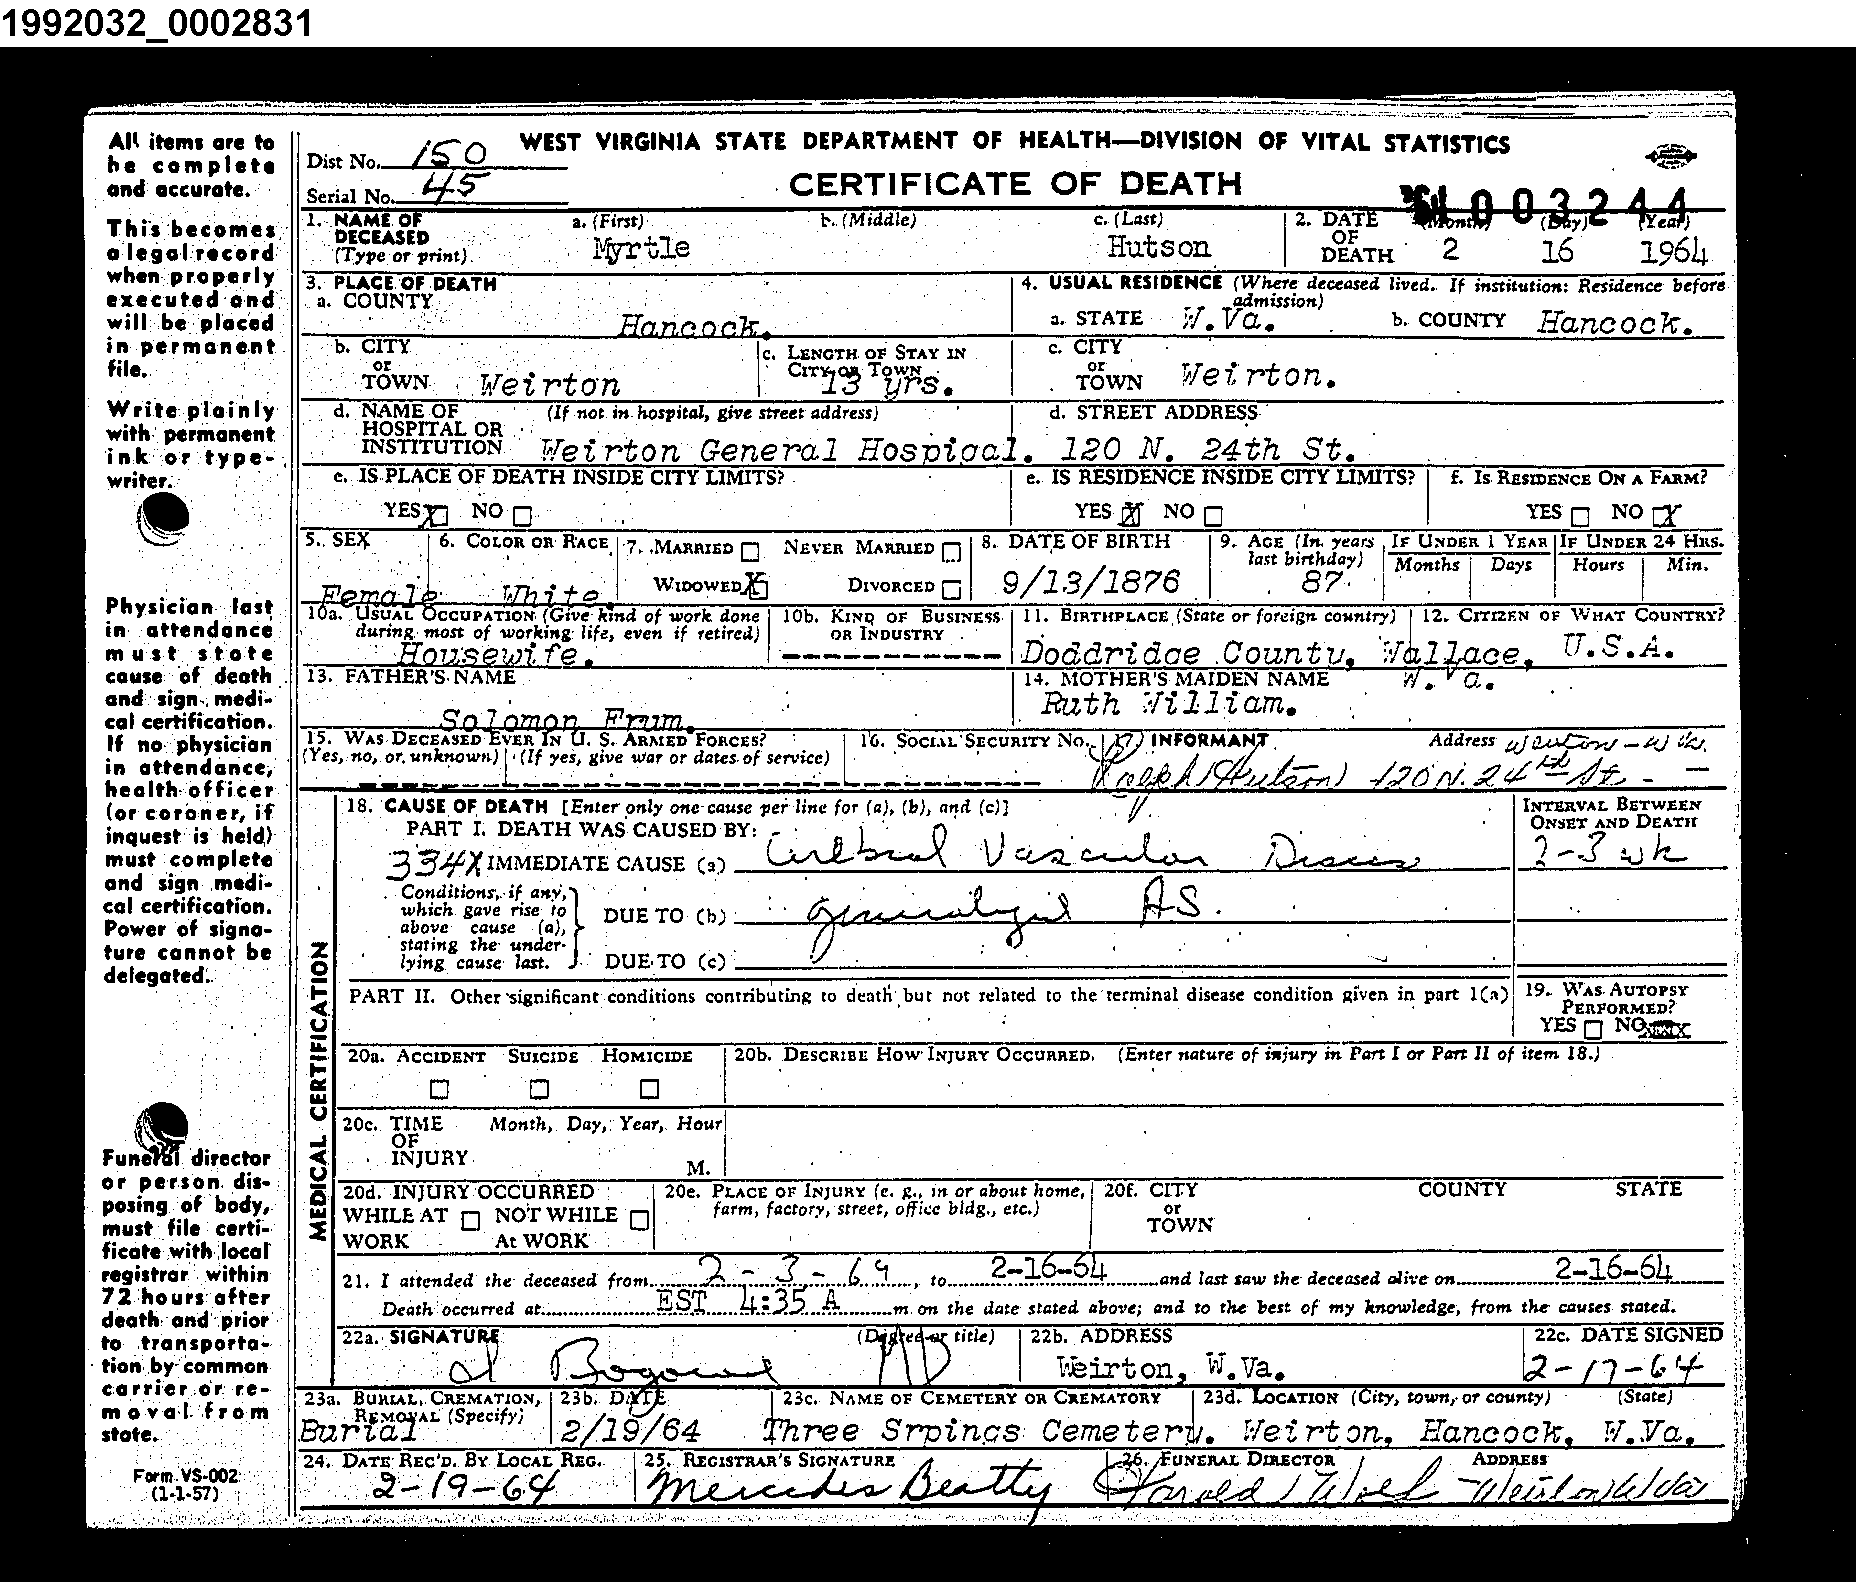 1992032_0002831
All items are to
be complete
and accurate.
This becomes
a legal record
when properly
executed and
will be placed
in permanent
file.
Write plainly
with permanent
ink or type-
writer.
Physician last
in attendance
must state
cause of death
and sign medi-
cal certification.
If no physician
in attendance,
health officer
(or coroner, if
inquest is held)
must complete
and sign medi-
cal certification.
Power of signa-
ture cannot be
delegated.
Funeral director
or person dis-
posing of body,
must file certi-
ficate with local
registrar within
72 hours after
death and prior
to transporta-
tion by common
carrier or re-
moval from
state.
Form VS-002
(1-1-57)
WEST VIRGINIA STATE DEPARTMENT OF HEALTH—DIVISION OF VITAL STATISTICS
Dist No. 150
Serial No. 45
CERTIFICATE OF DEATH
003244
1. NAME OF DECEASED (Type or print) a. (First) b. (Middle) c. (Last)
Myrtle Hutson
2. DATE OF DEATH (Month) (Day) (Year)
2 16 1964
3. PLACE OF DEATH
a. COUNTY
Hancock.
4. USUAL RESIDENCE (Where deceased lived. If institution: Residence before admission)
a. STATE W.Va. b. COUNTY Hancock.
b. CITY or TOWN Weirton
c. LENGTH OF STAY IN CITY OR TOWN
13 yrs.
c. CITY or TOWN Weirton.
d. NAME OF HOSPITAL OR INSTITUTION (If not in hospital, give street address)
Weirton General Hospigal.
d. STREET ADDRESS
120 N. 24th St.
e. IS PLACE OF DEATH INSIDE CITY LIMITS?
YES X NO
e. IS RESIDENCE INSIDE CITY LIMITS?
YES X NO
f. IS RESIDENCE ON A FARM?
YES NO X
5. SEX
Female
6. COLOR OR RACE
White
7. MARRIED NEVER MARRIED
WIDOWED X DIVORCED
8. DATE OF BIRTH
9/13/1876
9. AGE (In years last birthday)
87
IF UNDER 1 YEAR
Months Days
IF UNDER 24 HRS.
Hours Min.
10a. USUAL OCCUPATION (Give kind of work done during most of working life, even if retired)
Housewife.
10b. KIND OF BUSINESS OR INDUSTRY
-----------
11. BIRTHPLACE (State or foreign country)
Doddridge County, Wallace, W. Va.
12. CITIZEN OF WHAT COUNTRY?
U.S.A.
13. FATHER'S NAME
Solomon Frum.
14. MOTHER'S MAIDEN NAME
Ruth William.
15. WAS DECEASED EVER IN U. S. ARMED FORCES?
(Yes, no, or unknown) (If yes, give war or dates of service)
16. SOCIAL SECURITY NO.
17 INFORMANT Address Weirton - W Va.
Ralph Hutson 120 N. 24th St. -
18. CAUSE OF DEATH [Enter only one cause per line for (a), (b), and (c)]
INTERVAL BETWEEN ONSET AND DEATH
PART I. DEATH WAS CAUSED BY:
334X IMMEDIATE CAUSE (a) Cerebral Vascular Disease 2-3 wk
Conditions, if any, which gave rise to above cause (a), stating the under-lying cause last.
DUE TO (b) generalized AS.
DUE TO (c)
MEDICAL CERTIFICATION
PART II. Other significant conditions contributing to death but not related to the terminal disease condition given in part 1(a)
19. WAS AUTOPSY PERFORMED?
YES NO
20a. ACCIDENT SUICIDE HOMICIDE
20b. DESCRIBE HOW INJURY OCCURRED. (Enter nature of injury in Part I or Part II of item 18.)
20c. TIME OF INJURY Month, Day, Year, Hour
M.
20d. INJURY OCCURRED
WHILE AT WORK NOT WHILE At WORK
20e. PLACE OF INJURY (e. g., in or about home, farm, factory, street, office bldg., etc.)
20f. CITY or TOWN COUNTY STATE
21. I attended the deceased from 2-3-64, to 2-16-64 and last saw the deceased alive on 2-16-64
Death occurred at EST 4:35 A m on the date stated above; and to the best of my knowledge, from the causes stated.
22a. SIGNATURE (Degree or title)
MD
22b. ADDRESS
Weirton, W.Va.
22c. DATE SIGNED
2-17-64
23a. BURIAL, CREMATION, REMOVAL (Specify)
Burial
23b. DATE
2/19/64
23c. NAME OF CEMETERY OR CREMATORY
Three Srpings Cemetery.
23d. LOCATION (City, town, or county) (State)
Weirton, Hancock, W.Va.
24. DATE REC'D. BY LOCAL REG.
2-19-64
25. REGISTRAR'S SIGNATURE
Mercedes Beatty
26. FUNERAL DIRECTOR ADDRESS
Harold Wolf Weirton W Va